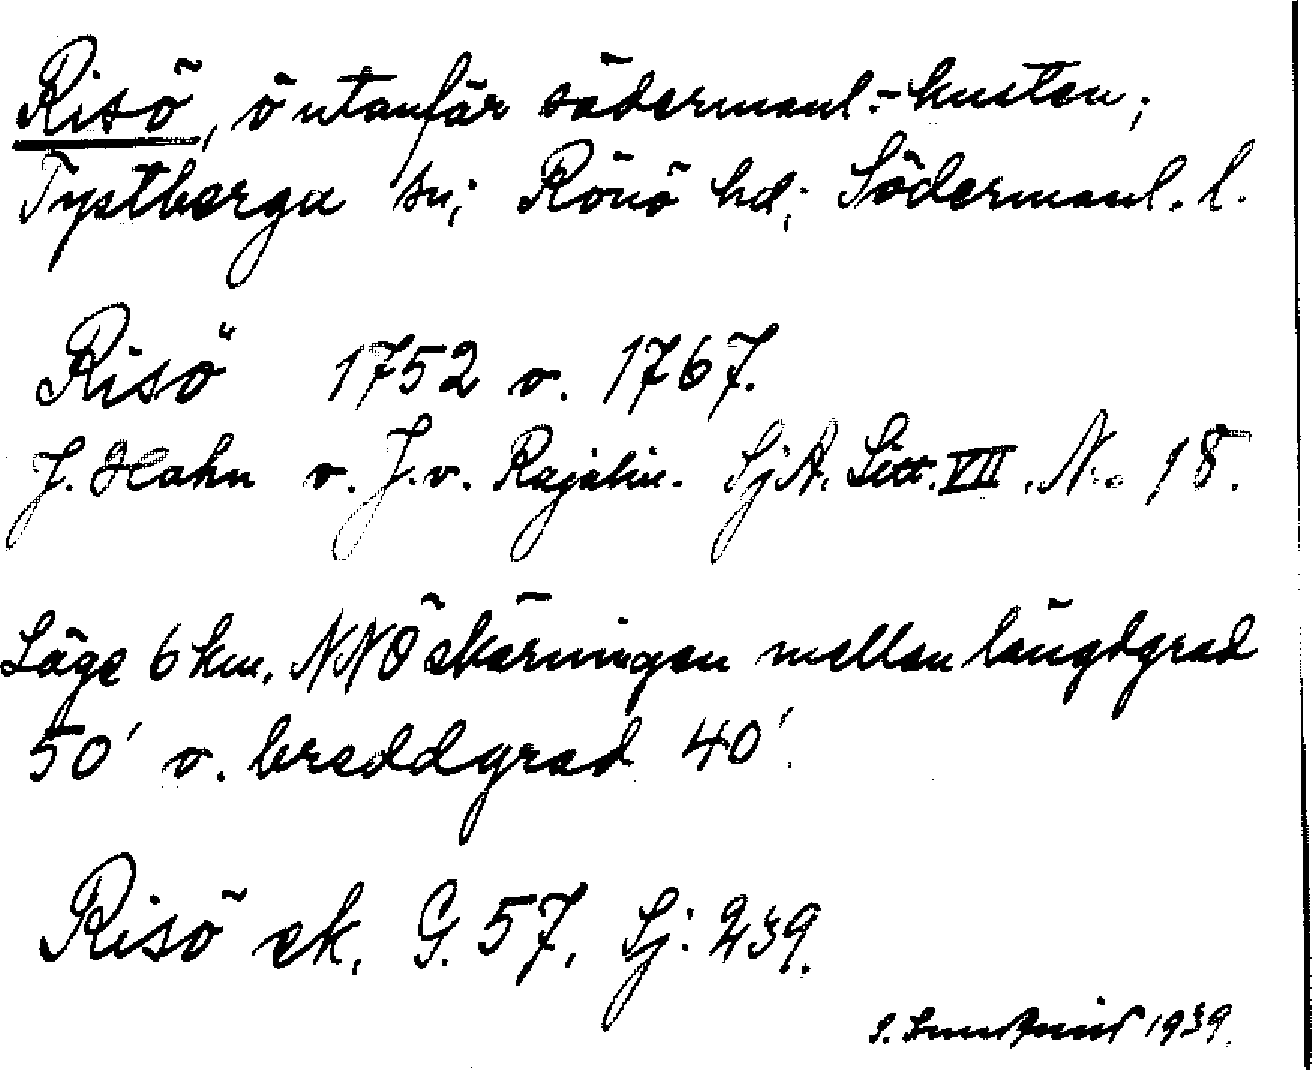 Risö, ö utanför södermanl.-kusten;
Tystberga sn; Rönö hd; Södermanl. l.
Risö 1752 o. 1767.
J. Hahn o. J. v. Rajalin. SjA. Litt. VII. No 18.
Läge 6 km. NNÖ skärningen mellan längdgrad
50' o. breddgrad 40'.
Risö ek. G. 57. Sj: 239.
S. 1939.